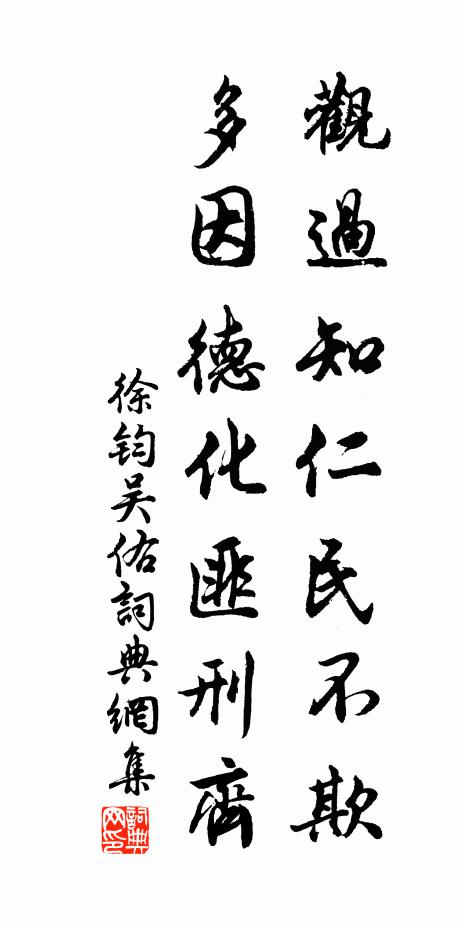 觀過知仁民不欺
多因德化匪刑齊
徐鈞吴佑詞典網集
詞典网印